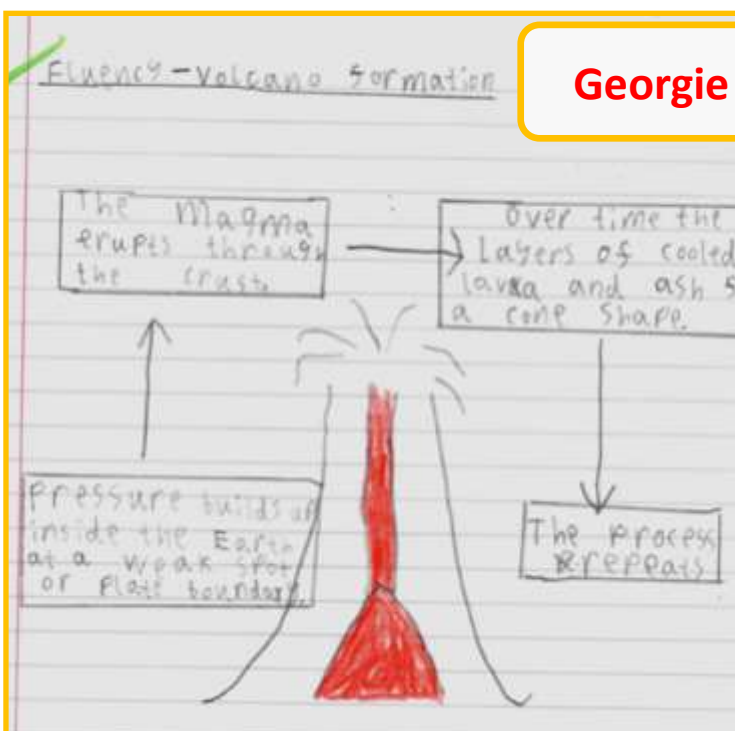 Fluency - Volcano formation
Georgie
The Magma
erupts through
the crust.
Over time the
Layers of cooled
lava and ash
a cone shape.
Pressure builds up
inside the Earth
at a weak spot
or plate boundary.
The process
repeats